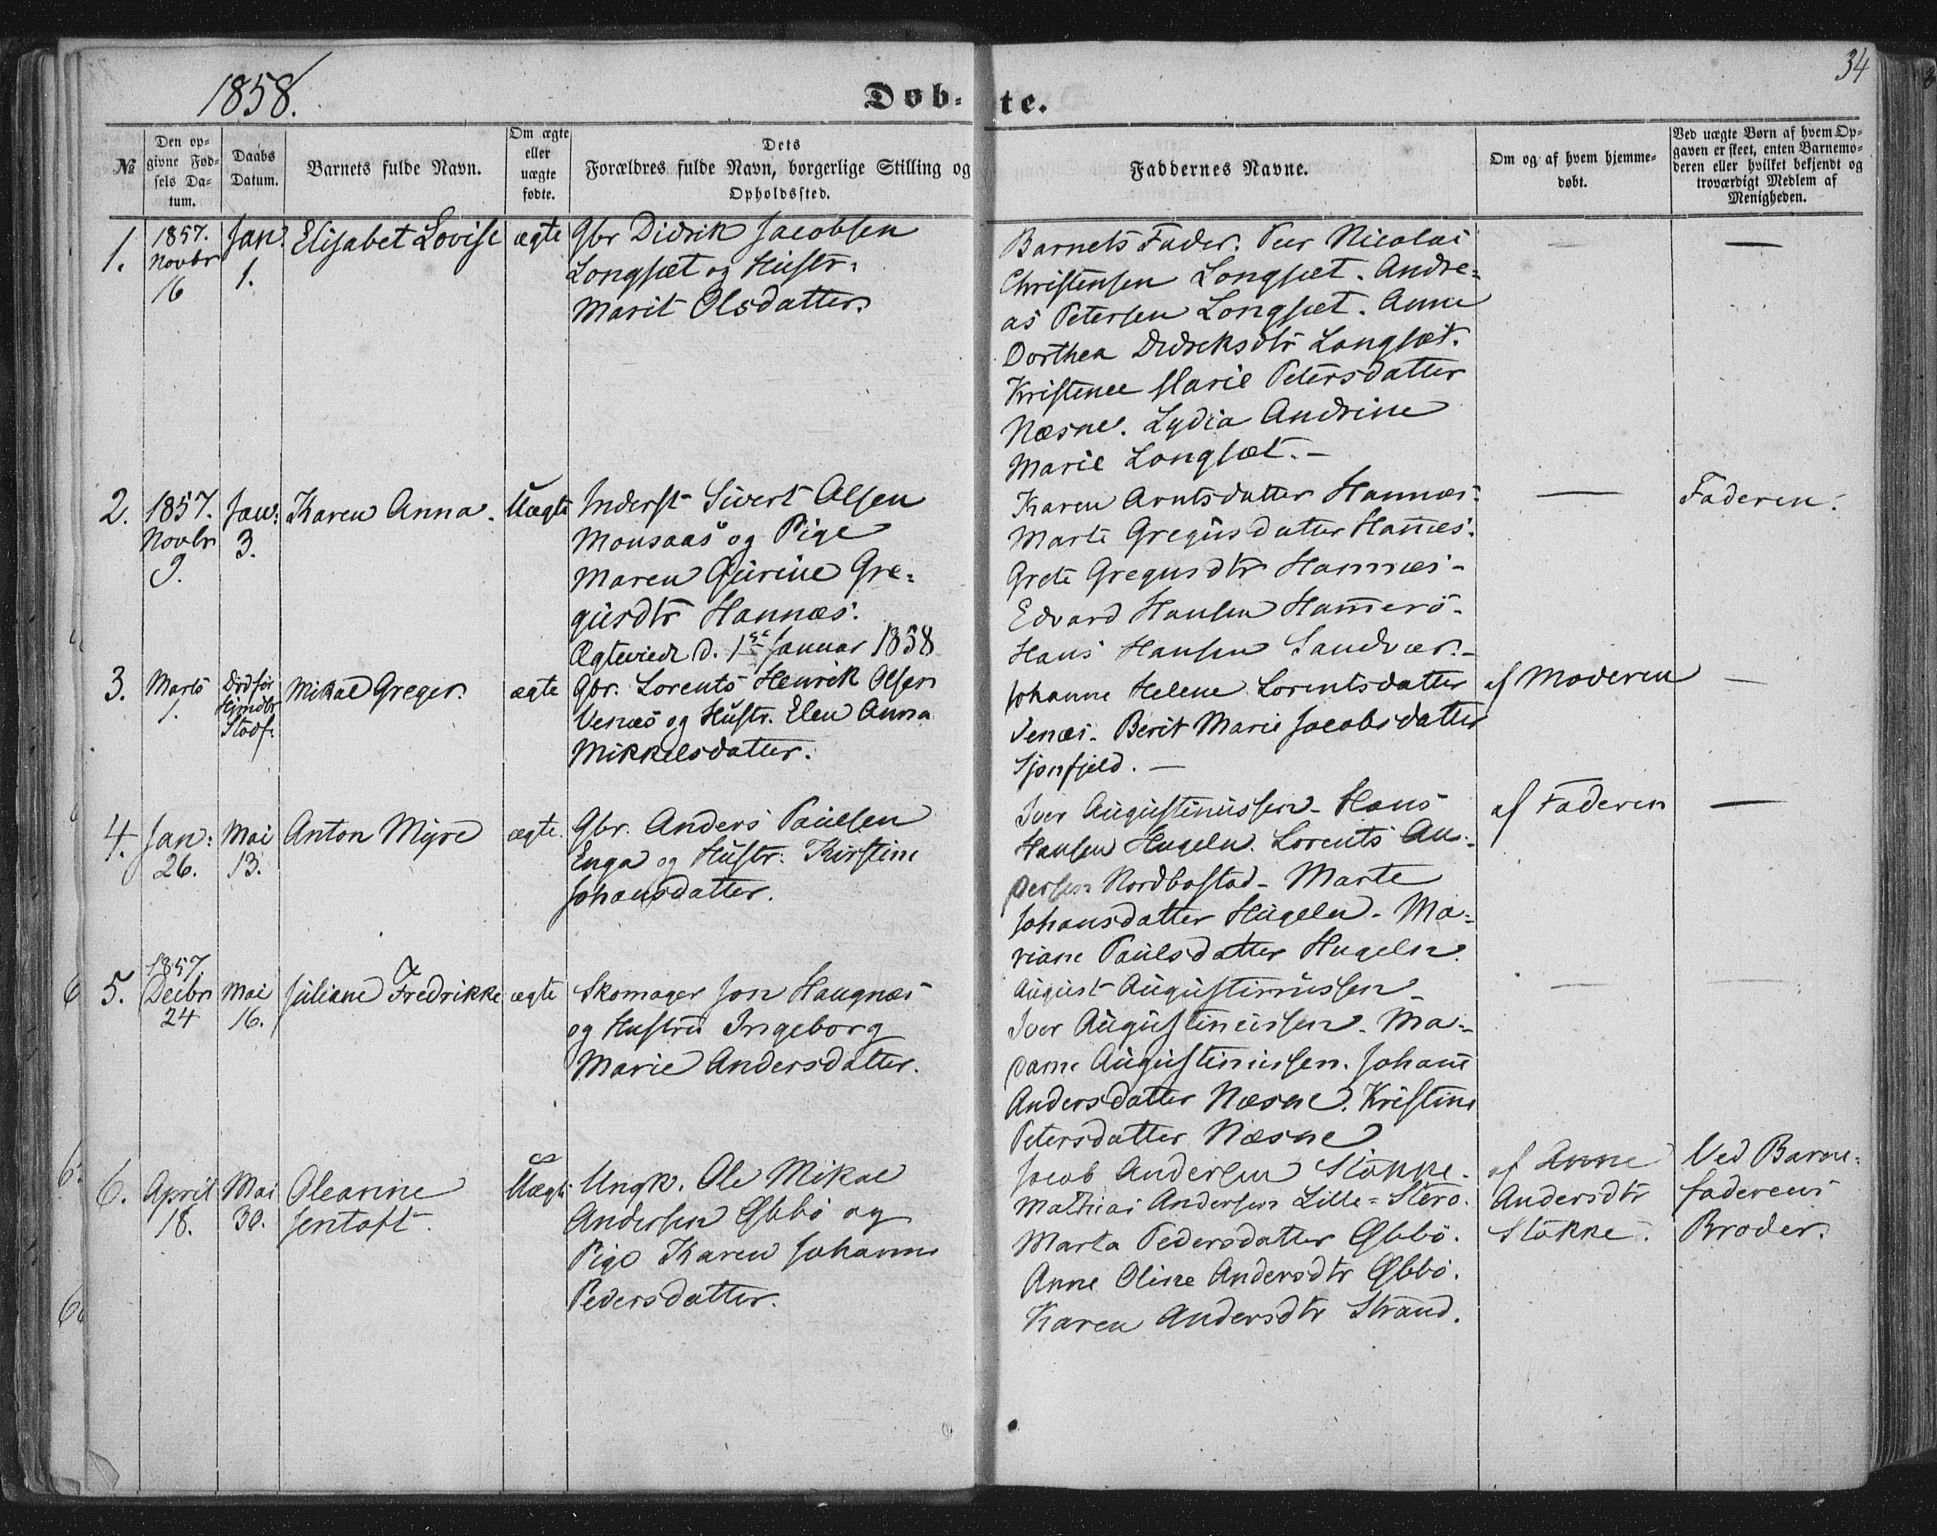 34
1858.
Døb-te.
№
Den op-
givne Fød-
sels Da-
tum.
Daabs
Datum.
Barnets fulde Navn.
Om ægte
eller
uægte
fødte.
Dets
Forældres fulde Navn, borgerlige Stilling og
Opholdssted.
Faddernes Navne.
Om og af hvem hjemme-
døbt.
Ved uægte Børn af hvem Op-
gaven er skeet, enten Barnemo-
deren eller hvilket bekjendt og
troværdigt Medlem af
Menigheden.
1.
1857.
Novbr
16
Jan:
1.
Elisabet Lovise
ægte
Gbr Didrik Jacobsen
Longsæt og Hustr.
Marit Olsdatter.
Barnets Fader. Peer Nicolai
Christensen Longsæt. Andre-
as Petersen Longsæt. Anne
Dorthea Didreksdtr Langsæt.
Kristence Marie Petersdatter
Næsne. Lydia Andrine
Marie Longsæt. —
—
—
2.
1857.
Novbr
9.
Jan:
3.
Karen Anna.
Uægte
Inderst Sivert Olsen
Monsaas og Pige
Maren Gurine Gre-
gusdtr Hannæs.
Ægteviede d. 1ste Januar 1858
Karen Arntsdatter Hannæs.
Marte Gregusdatter Hannæs.
Grete Gregusdtr Hannæs -
Edvard Hansen Hammerö -
Hans Hansen Sandvær. -
—
Faderen.
3.
Marts
1.
Död för
Stadf.
Mikal Greger.
ægte
Gbr. Lorents Henrik Olsen
Venæs og Hustr. Elen Anna
Mikkelsdatter.
Johanne Helene Lorentsdatter
Venæs - Berit Marie Jacobsdatter
Sjonfjeld. —
af Moderen
—
4.
Jan:
26.
Mai
13.
Anton Myre
ægte.
Gbr. Anders Paulsen
Enga og Hustr: Kirstine
Johansdatter.
Iver Augustinussen - Hans
Hansen Hugeln. Lorents An-
dersen Nordbostad - Marte
Johansdatter Hugeln - Ma-
riane Paulsdatter Hugeln.
af Faderen
—
5.
1857.
Decbr
24
Mai
16.
Juliane Fredrikke
ægte
Skomager Jon Haugnæs
og Hustru Ingeborg
Marie Andersdatter.
August Augustinussen -
Iver Augustinussen - Ma-
dame Augustinussen. Johane
Andersdatter Næsne. Kristine
Petersdatter Næsne
—
—
6.
April
18.
Mai
30.
Oleanne
Jentoft.
Uægte
Ungk. Ole Mikal
Andersen Øbbö og
Pige Karen Johanne
Pedersdatter.
Jacob Andersen Stokke.
Mathias Andersen Lille-Sterö.
Marta Pedersdatter Øbbö.
Anne Oline Andersdtr Øbbö.
Karen Andersdtr Strand.
af Anne
Andersdtr
Stokke.
Ved Barne-
faderens
Broder.